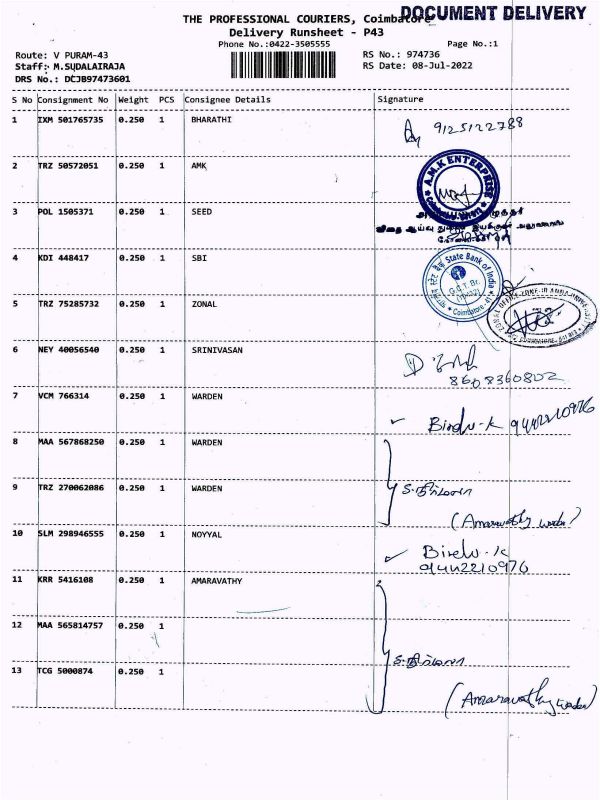 DOCUMENT DELIVERY
THE PROFESSIONAL COURIERS, Coimbatore
Delivery Runsheet - P43
Phone No.:0422-3505555
Page No.:1
Route: V PURAM-43
RS No.: 974736
Staff: M.SUDALAIRAJA
RS Date: 08-Jul-2022
DRS No.: DCJB97473601
S No Consignment No Weight PCS Consignee Details Signature
1 IXM 501765735 0.250 1 BHARATHI 9125122788
2 TRZ 50572051 0.250 1 AMK
A.M.K ENTERPRISE
3 POL 1505371 0.250 1 SEED
4 KDI 448417 0.250 1 SBI
State Bank of India
Coimbatore-41
5 TRZ 75285732 0.250 1 ZONAL
6 NEY 40056540 0.250 1 SRINIVASAN
8608360802
7 VCM 766314 0.250 1 WARDEN Bindu-K 9442210976
8 MAA 567868250 0.250 1 WARDEN
9 TRZ 270062086 0.250 1 WARDEN
(Amaravathy warden)
10 SLM 298946555 0.250 1 NOYYAL Bindu-K
9442210976
11 KRR 5416108 0.250 1 AMARAVATHY
12 MAA 565814757 0.250 1
13 TCG 5000874 0.250 1
(Amaravathy warden)